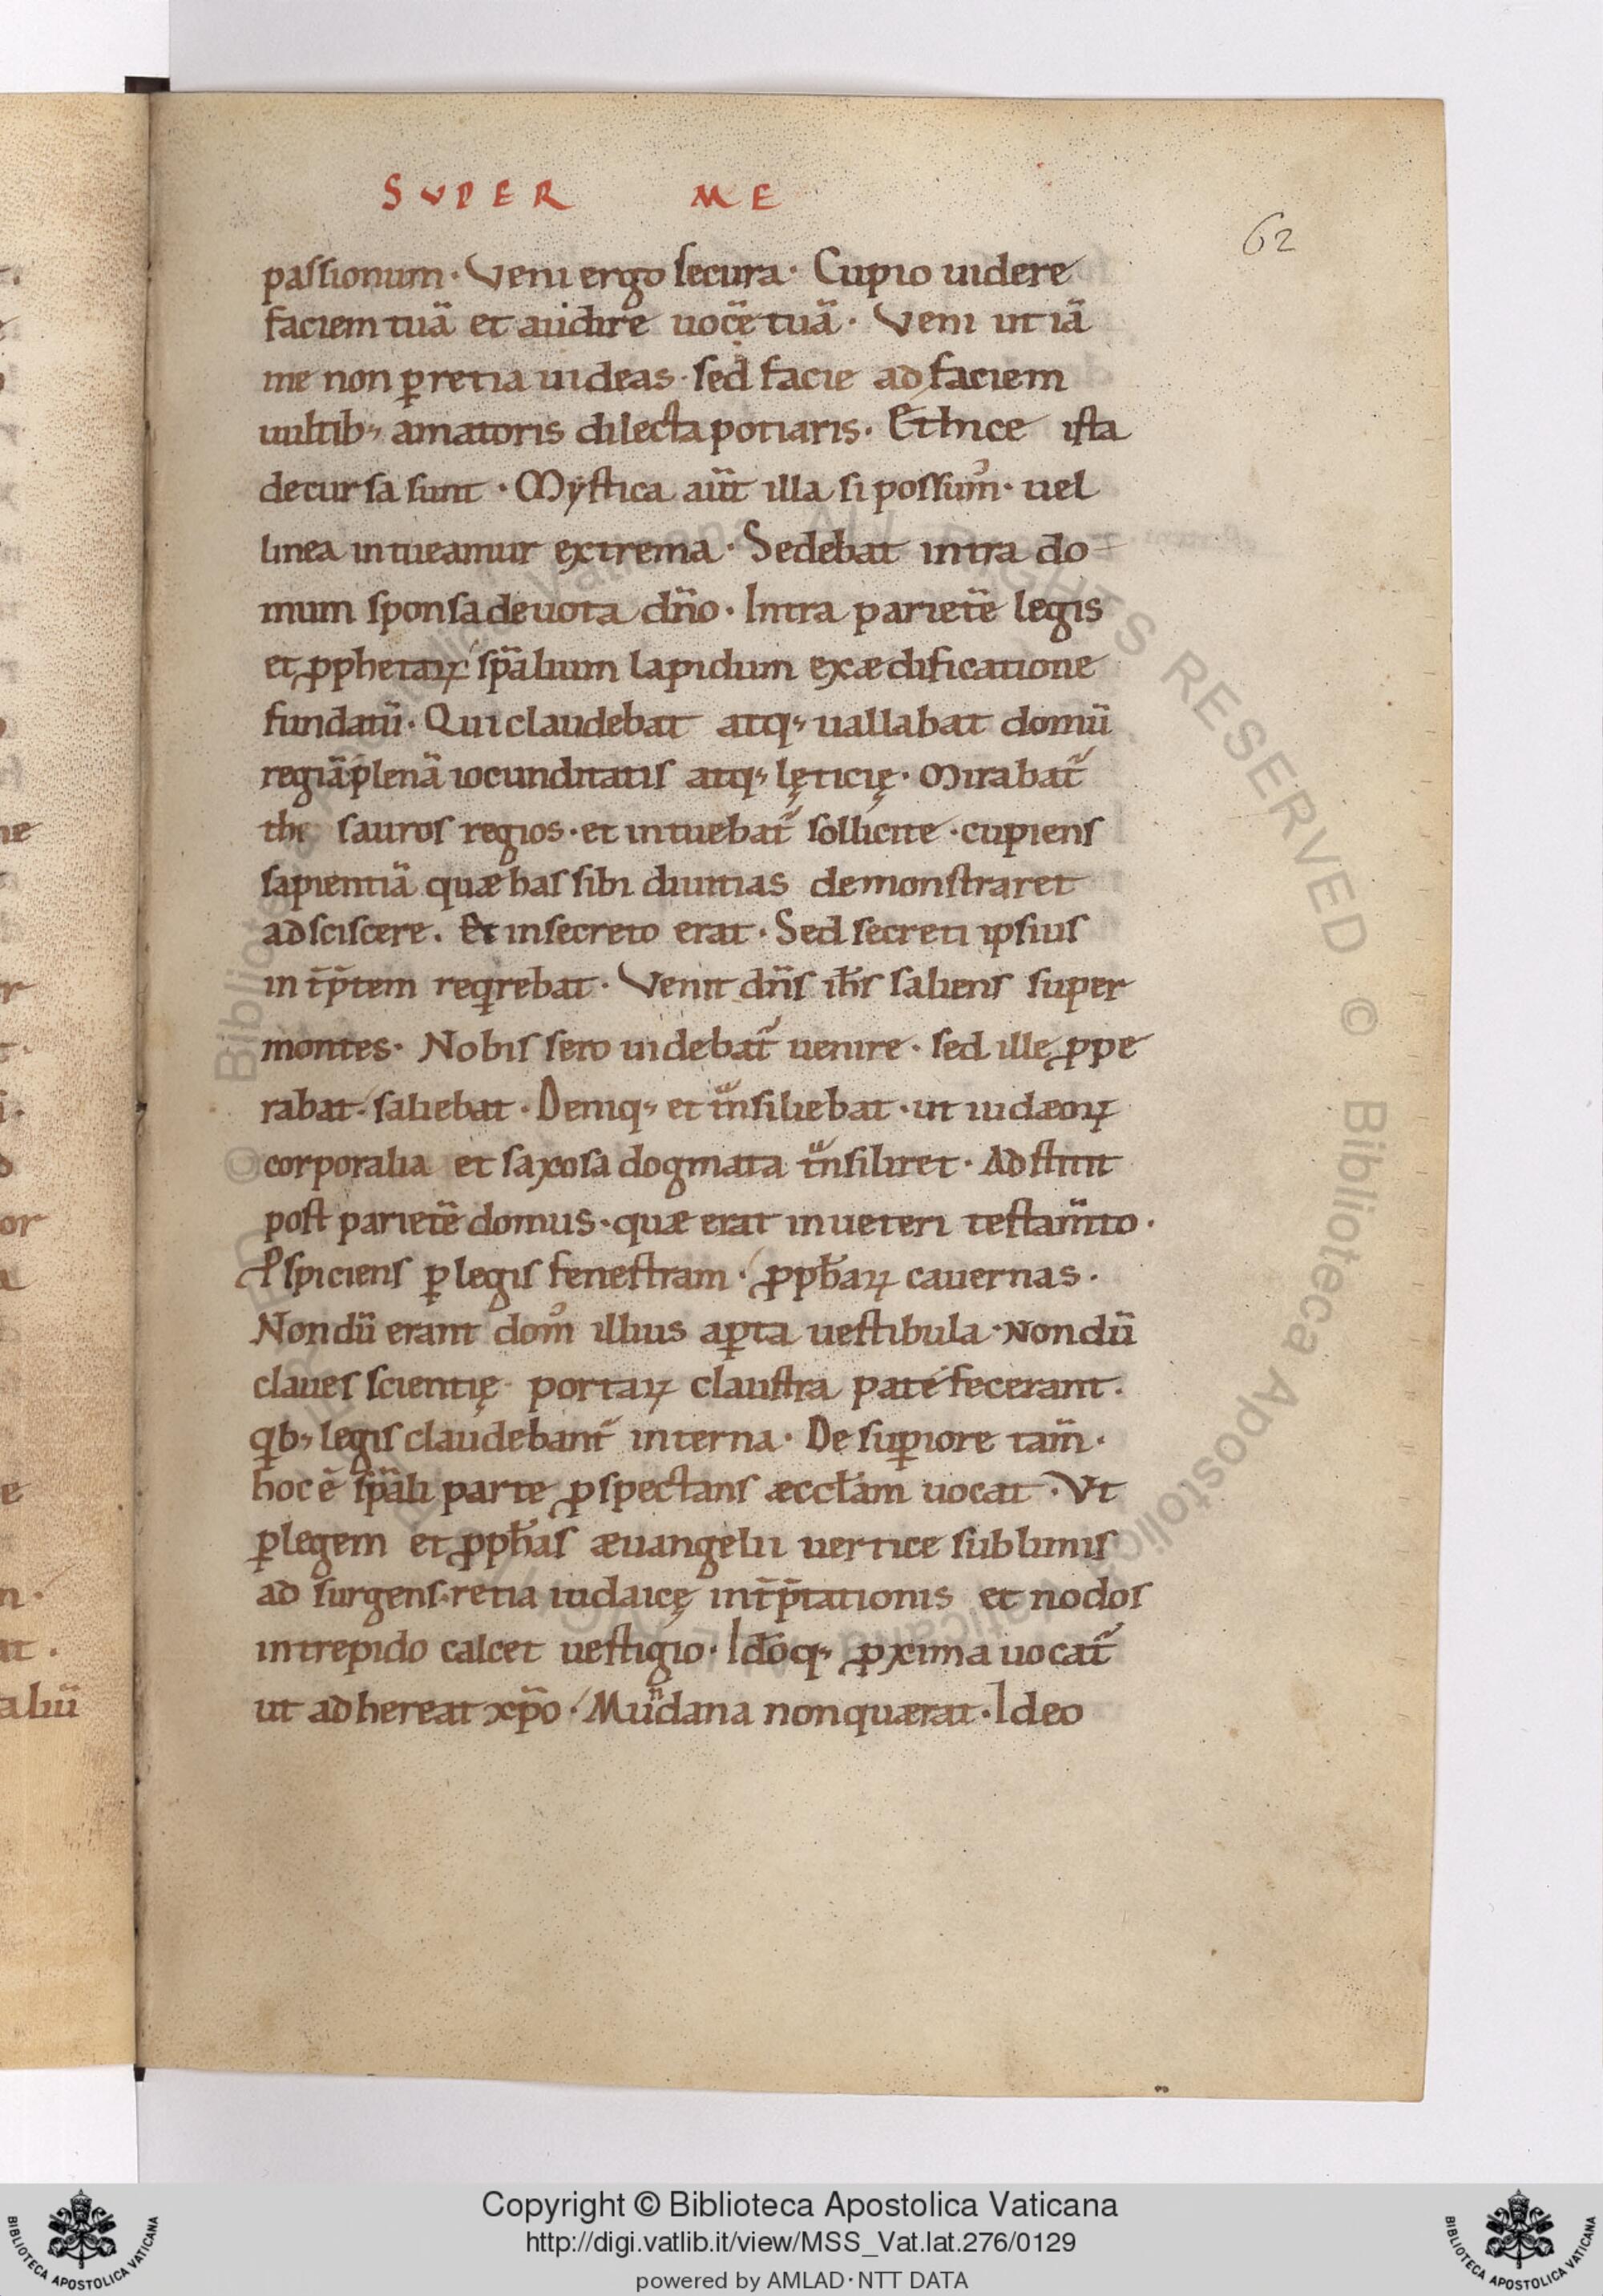 SUPER ME
62
passionum · Veni ergo secura · Cupio uidere
faciem tuā et audire uocē tuā · Veni ut iā
me non ꝑ retia uideas · sed facie ad faciem
uultib; amatoris dilecta potiaris · Ethice ista
decursa sunt · Mystica aūt illa si possum᾿ · uel
linea intueamur extrema · Sedebat intra do-
mum sponsa deuota dn̄o · Intra parietē legis
et ꝓphetaꝝ sp̄alium lapidum exædificatione
fundatū · Qui claudebat atq; uallabat domū
regiā plenā iocunditatis atq; lęticię · Mirabat᷑
the sauros regios · et intuebat᷑ sollicite · cupiens
sapientiā quæ has sibi diuitias demonstraret
adsciscere . Et in secreto erat · Sed secreti ipsius
int̄p̄tem reqͥrebat · Venit dn̄s ih̄s saliens super
montes · Nobis sero uidebat᷑ uenire · sed ille ꝓpe
rabat · saliebat · Deniq; et tͣnsiliebat · ut iudæoꝝ
corporalia et saxosa dogmata tͣnsiliret · Adstitit
post parietē domus · quæ erat in ueteri testam̄to ·
Ꝓspiciens ꝑ legis fenestram · ꝓph̄aꝝ cauernas ·
Nondū erant dom᾿ illius aꝑta uestibula · Nondū
claues scientię portaꝝ claustra patefecerant .
qͥb; legis claudebant᷑ interna · De suꝑiore tam̄ ·
hoc ē sp̄ali parte ꝓspectans æccl̄am uocat · Vt
ꝑ legem et ꝓph̄as æuangelii uertice sublimis
ad surgens · retia iudaicę int̄p̄tationis et nodos
intrepido calcet uestigio · Id̄oq; ꝓxima uocat᷑
ut adhereat xp̄o · Mundana non quærat · Ideo
Copyright © Biblioteca Apostolica Vaticana
http://digi.vatlib.it/view/MSS_Vat.lat.276/0129
powered by AMLAD·NTT DATA